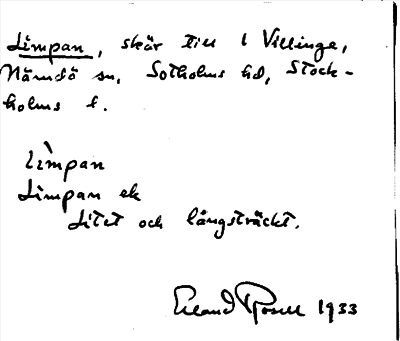 Limpan, skär till 1 Villinge,
Nämdö sn, Sotholms hd, Stock-
holms l.
Lìmpan
Limpan ek
Litet och långsträckt.
Erland Rosell 1933